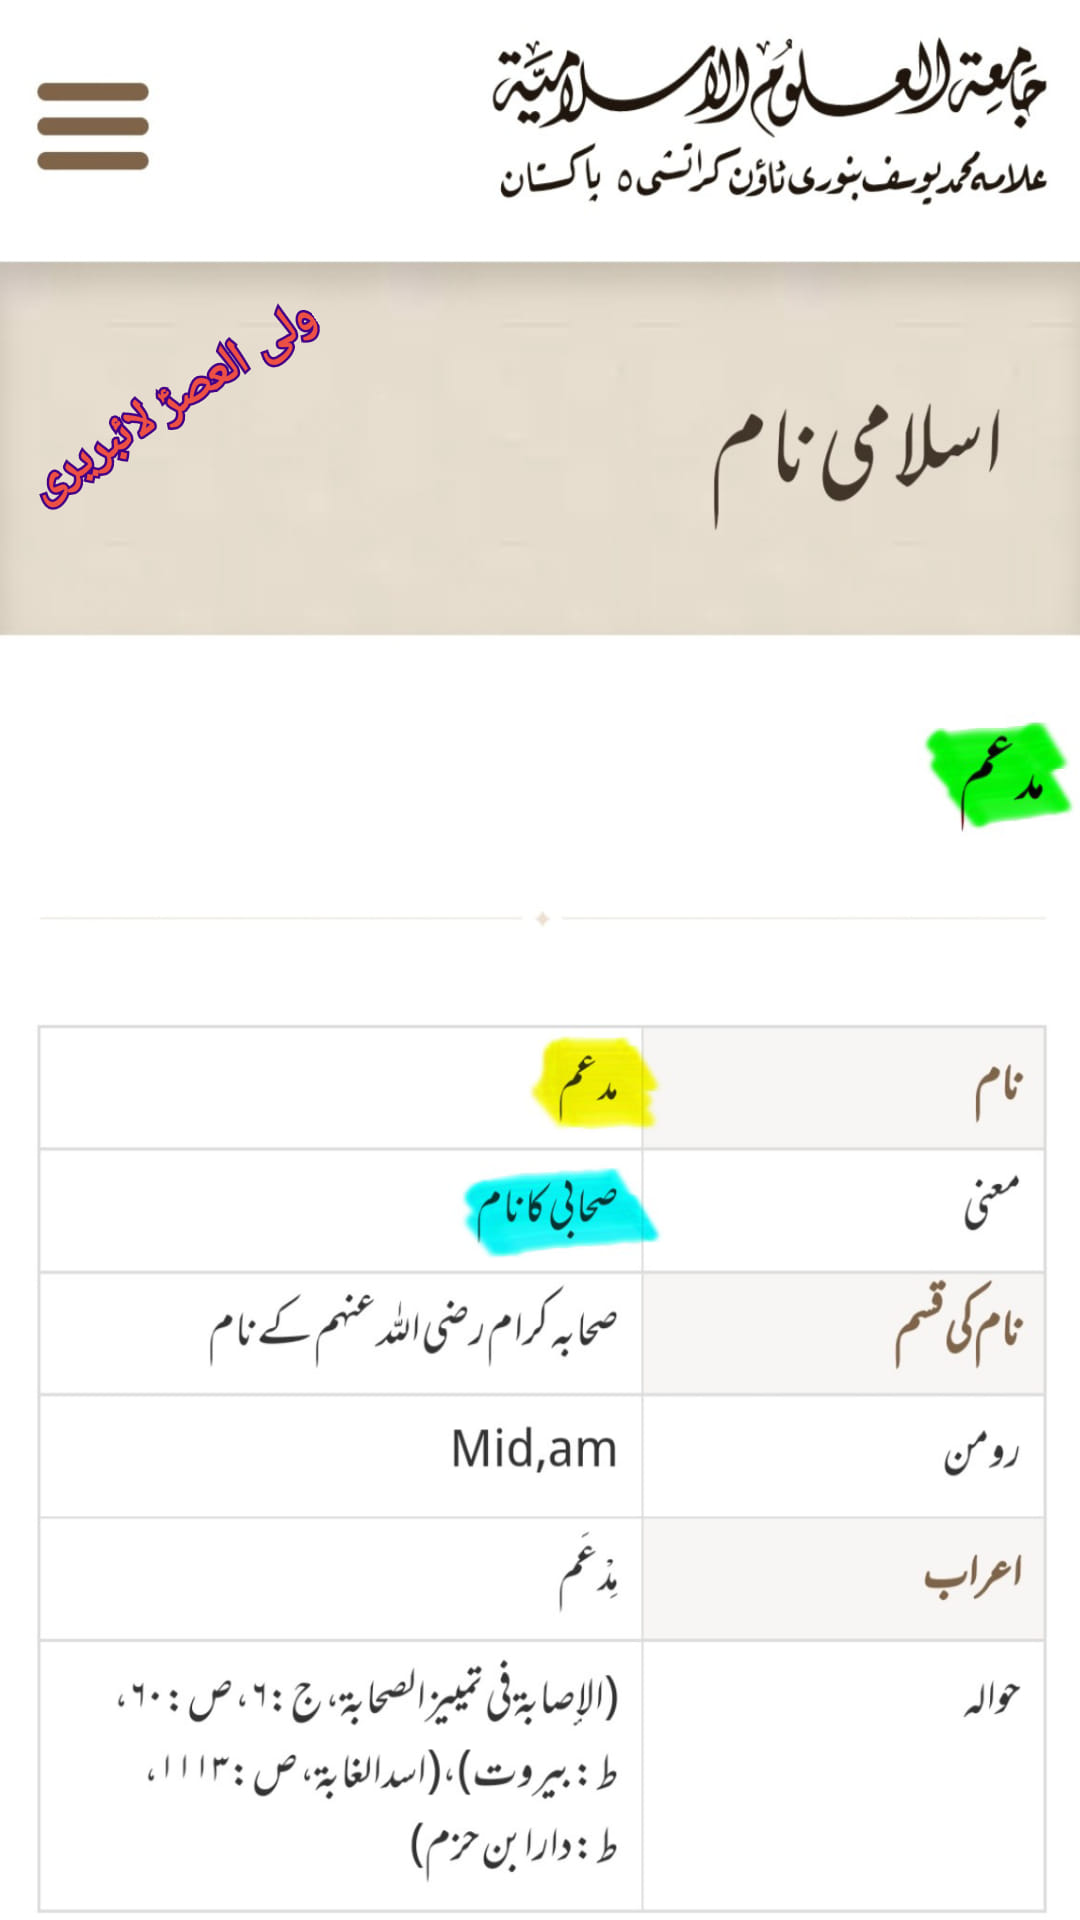 جَامِعَة العُلوُم الاسلامیَّة
علامہ محمد یوسف بنوری ٹاؤن کراتشی ٥ پاکستان
ولی العصرؑ لائبریری
اسلامی نام
مدعم
نام مدعم
معنی صحابی کا نام
نام کی قسم صحابہ کرام رضی اللہ عنہم کے نام
رومن Mid,am
اعراب مِدْعَم
حوالہ (الإصابة فی تمییز الصحابة، ج :٦، ص :٦٠،
ط : بیروت)،(اسد الغابة، ص :١١١٣،
ط :دار ابن حزم)